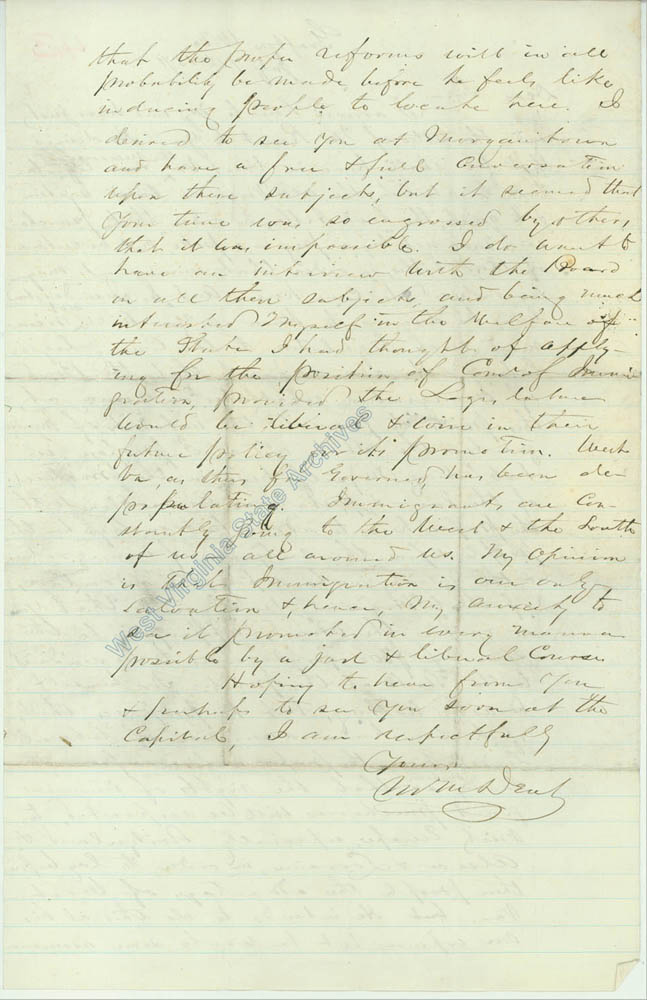 that the proper reforms will in all
probability be made before he feels like
inducing people to locate here. I
desired to see you at Morgantown
and have a free & full conversation
upon these subjects, but it seemed that
your time was so engrossed by others,
that it was impossible. I do want to
have an interview with the Board
on all these subjects, and being much
interested myself in the welfare of
the State I had thought of apply-
ing for the position of Com. of Immi-
gration, provided the Legislature
would be liberal & wise in their
future policy for its promotion. West
Va, as thus far Governed, has been de-
populating. Immigrants are con-
stantly going to the West & the South
of us, all around us. My opinion
is that Immigration is our only
salvation &, hence, my anxiety to
see it promoted in every manner
possible by a just & liberal Course.
Hoping to hear from you
& perhaps to see you soon at the
Capital, I am respectfully
Yours,
Wm M Dent
West Virginia State Archives